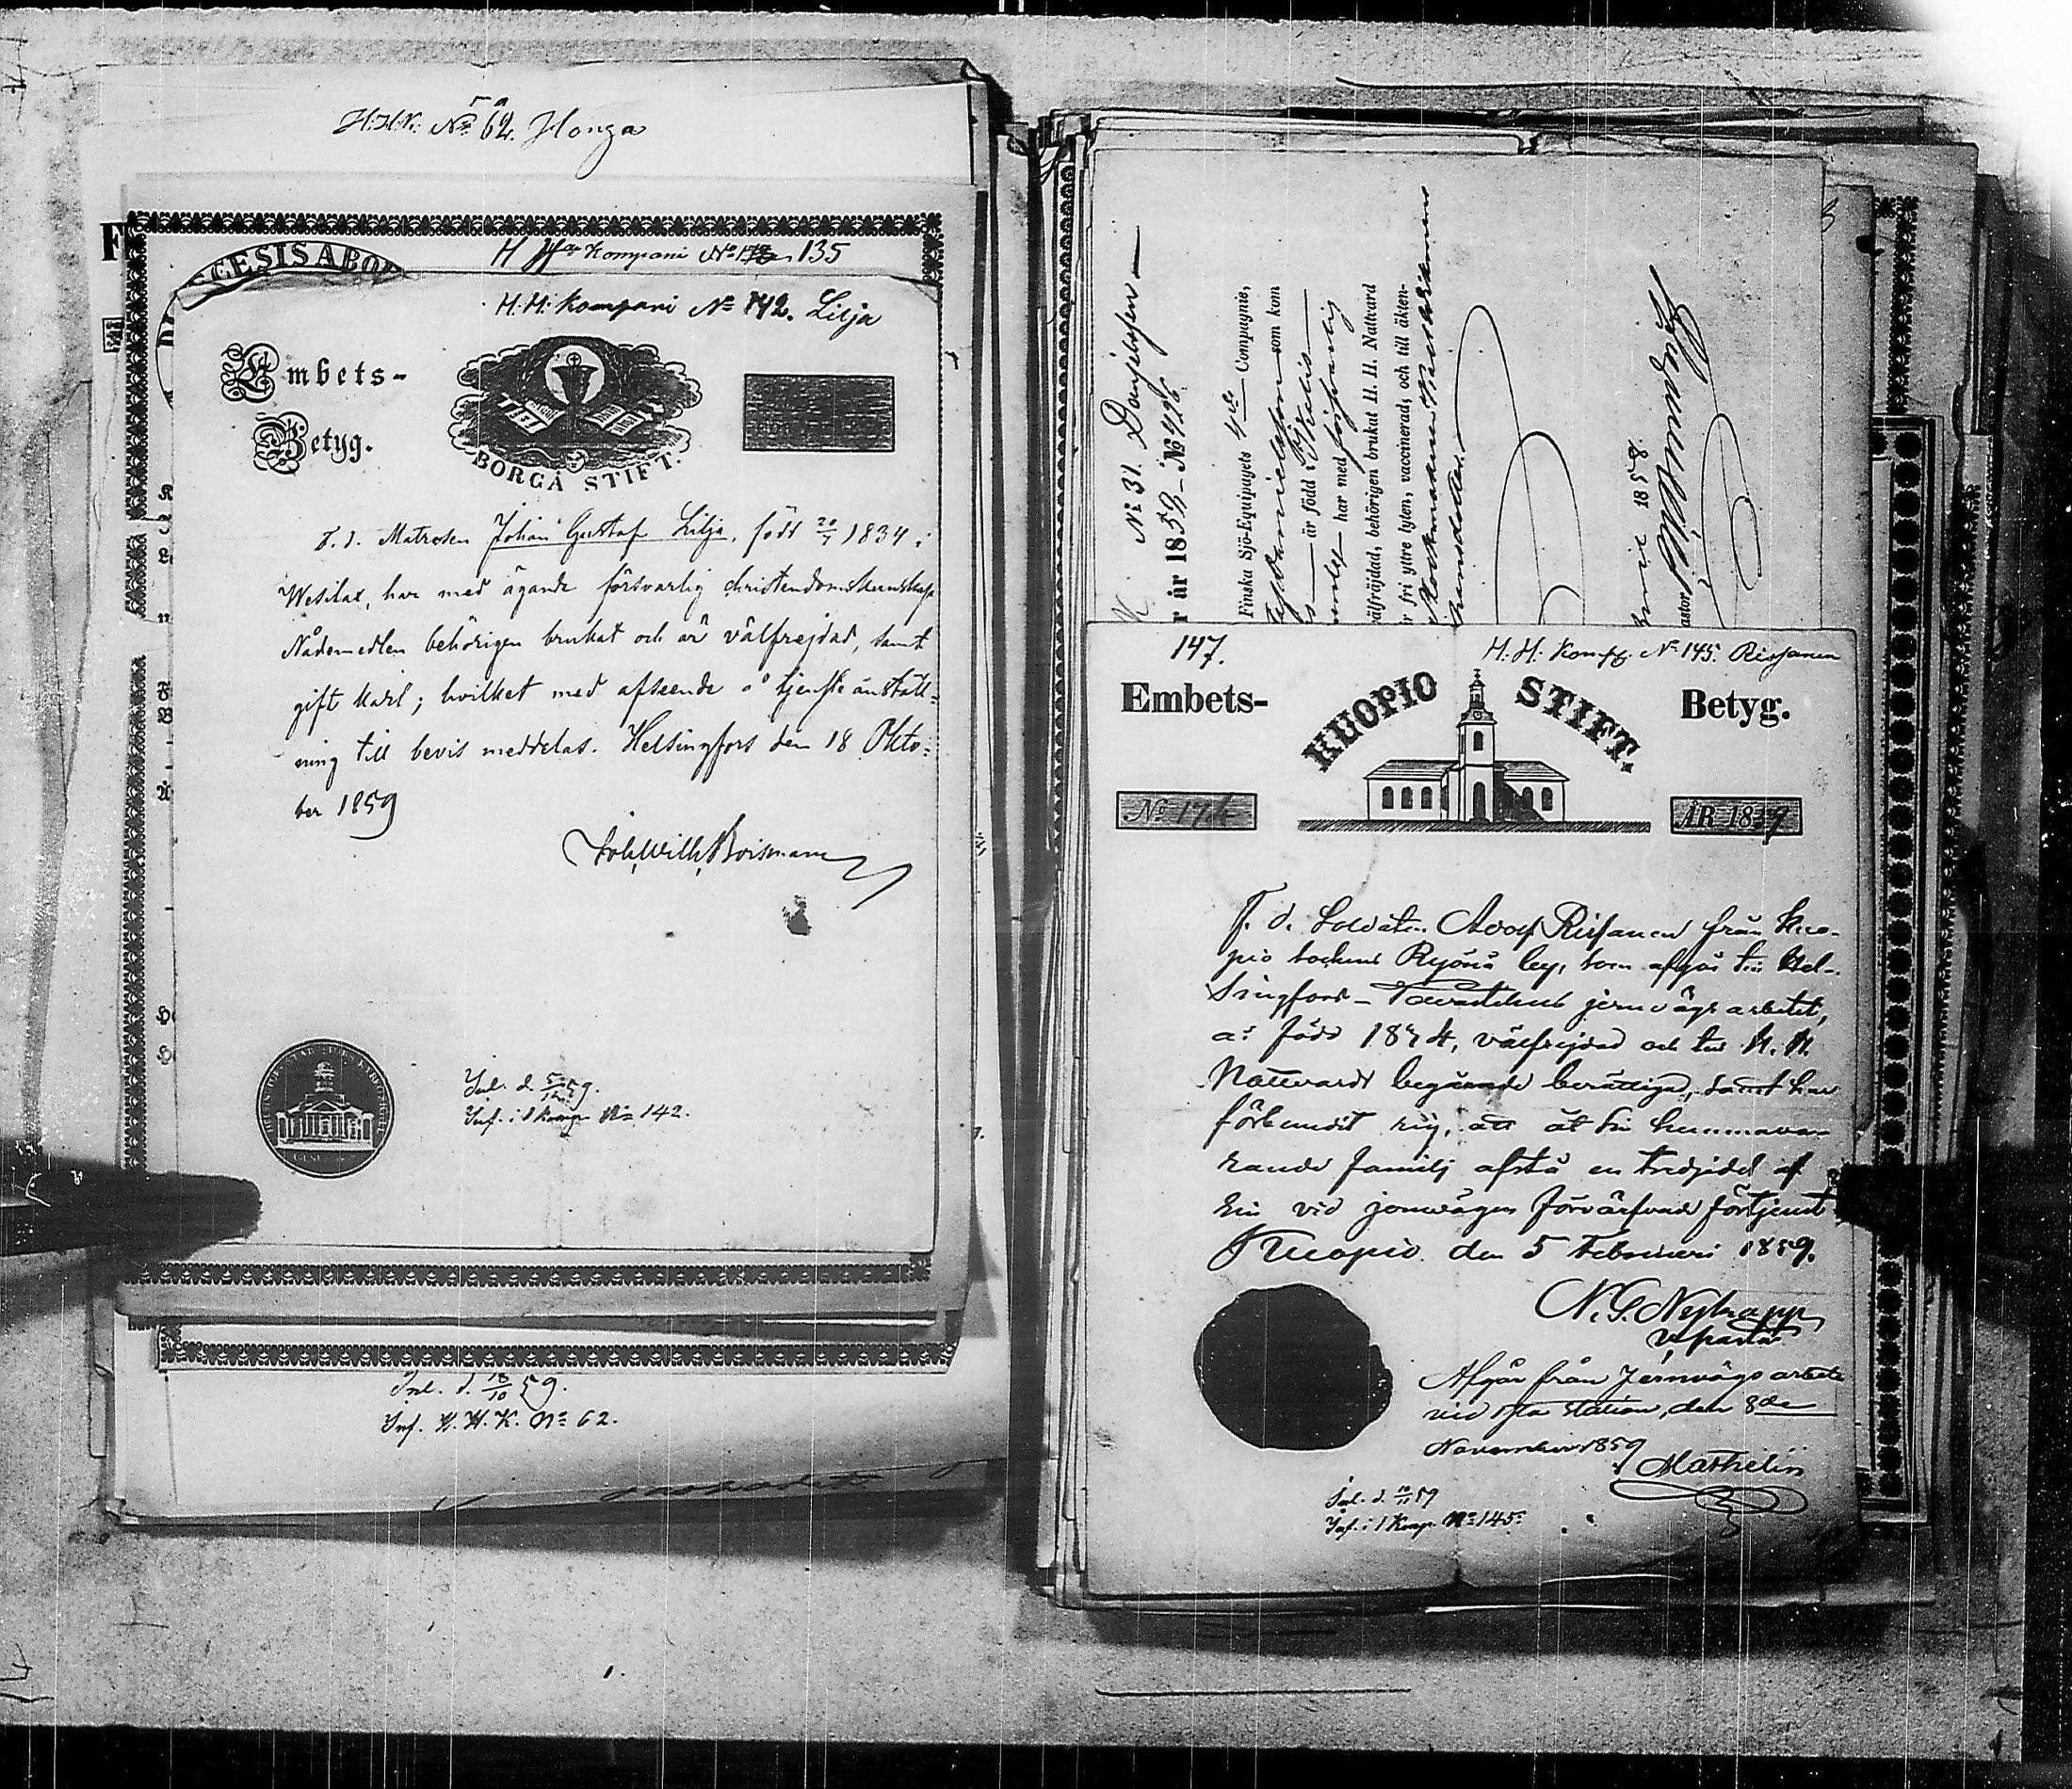 H.H.K. No 62. Honga
CESIS ABO
H Ha Kompani No 135
H.H. Kompani No 142. Lilja
Embets-
Betyg.
BORGÅ STIFT.
F. d. Matrosen Johan Gustaf Lilja, född 20/7 1834 i
Wesilax, har med ägande försvarlig christendomskunskap
Nådemedlen behörigen brukat och är välfrejdad, samt
gift karl; hvilket med afseende å tjensteanställ-
ning till bevis meddelas. Helsingfors den 18 Okto-
ber 1859
Joh. Wilh. Boisman
Inl. d. 5/12 59.
Inf. i 1 Komp No 142.
Inl. d. 18/10 59.
Inf. H. H. K. No 62.
No 31 Danielsson
r år 1858 – No 426
Finska Sjö-Equipagets 4de Compagnie,
Danielsson som kom
är född i
har med försvarlig
välfräjdad, behörigen brukat H. H. Nattvard
r fri yttre lyten, vaccinerad; och till äkten-
Juni 1858.
astor
147.
H. H. Komp. No 145. Rissanen
Embets-
KUOPIO STIFT.
Betyg.
No 174
ÅR 1859
F. d. Soldaten Adolf Rissanen från Kuo-
pio sockens Ryönä by, som afgår till Hel-
singfors – Tavastehus jernvägs arbetet,
är född 1824, välfrejdad och till H. H.
Nattvards begående berättigad, samt har
förbundit sig, att åt sin hemmava-
rande familj afstå en tredjedel af
sin vid jernvägen förvärfvade förtjenst
Kuopio den 5 Februari 1859.
N. G. Nykopp
v. pastor
Afgår från Jernvägs arbete
vid station, den 8de
November 1859
Mathelin
Inl. d. 10/11 59
Inf. i 1 Komp. No 145